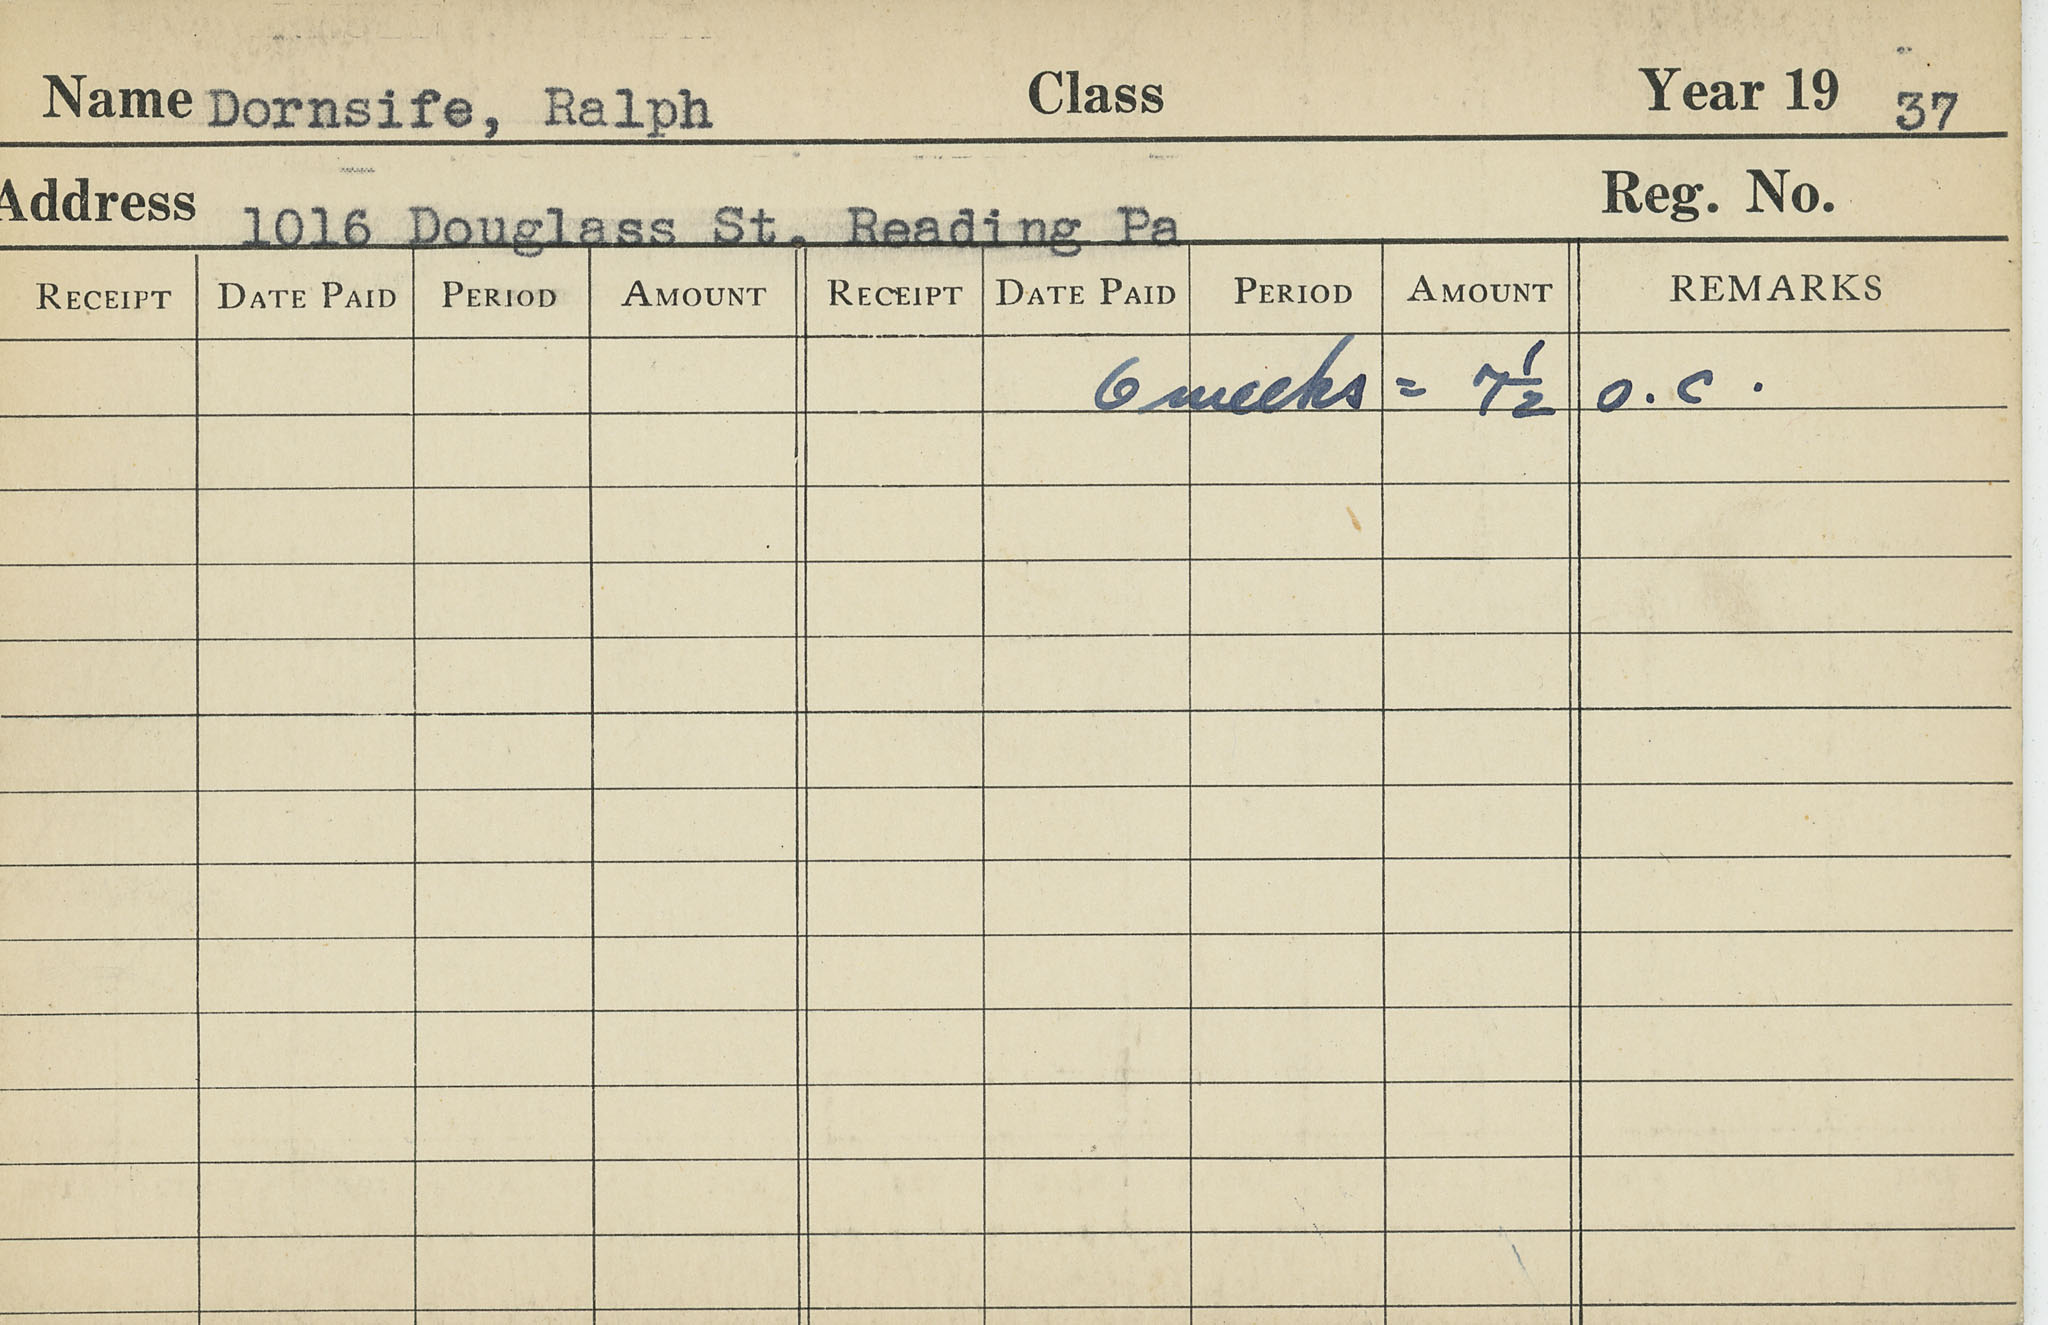 Name Dornsife, Ralph Class Year 19 37
Address 1016 Douglass St. Reading Pa Reg. No.
RECEIPT DATE PAID PERIOD AMOUNT RECEIPT DATE PAID PERIOD AMOUNT REMARKS
6 weeks = 7½ o.c.